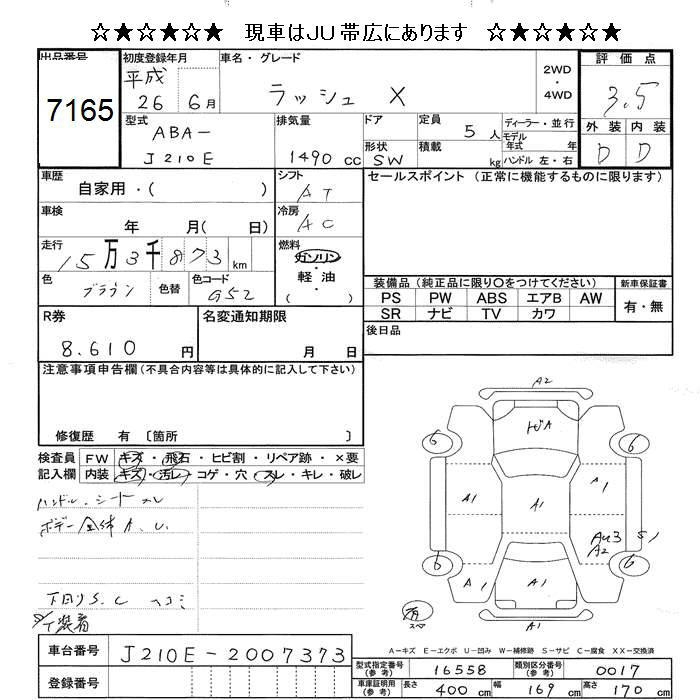 ☆★☆★☆★ 現車はJU帯広にあります ☆★☆★☆★
出品番号 7165
初度登録年月 平成 26 6月
車名・グレード ラッシュ X
2WD・4WD
評価点 3.5
外装 内装
D D
型式 ABA- J210E
排気量 1490 cc
ドア
形状 SW
定員 5人
積載 kg
ディーラー・並行
モデル年式 年
ハンドル 左・右
車歴 自家用・( )
シフト AT
セールスポイント (正常に機能するものに限ります)
車検 年 月( 日)
冷房 AC
走行 15万3千873km
燃料 ガソリン・軽油・( )
色 ブラウン 色替 色コード G52
装備品 (純正品に限り〇をつけてください)
新車保証書
PS PW ABS エアB AW
有・無
SR ナビ TV カワ
後日品
R券 8.610円
名変通知期限 月 日
注意事項申告欄(不具合内容等は具体的に記入して下さい)
修復歴 有 〔箇所
検査員記入欄
FW キズ・飛石・ヒビ割・リペア跡・×要
内装 キズ・汚レ・コゲ・穴・スレ・キレ・破レ
ハンドル.シートスレ
ボデー全体A.U.
下回りS.C ヘコミ
装着
A2
トビA
6 6
A1 A1 A1
AU3 S1
A2
6 6
A1 A1
A1
有 スペ
A-キズ E-エクボ U-凹み W-補修跡 S-サビ C-腐食 XX-交換済
車台番号 J210E-2007373
型式指定番号(参考) 16558 類別区分番号(参考) 0017
登録番号
車庫証明用(参考) 長さ 400cm 幅 169cm 高さ 170cm